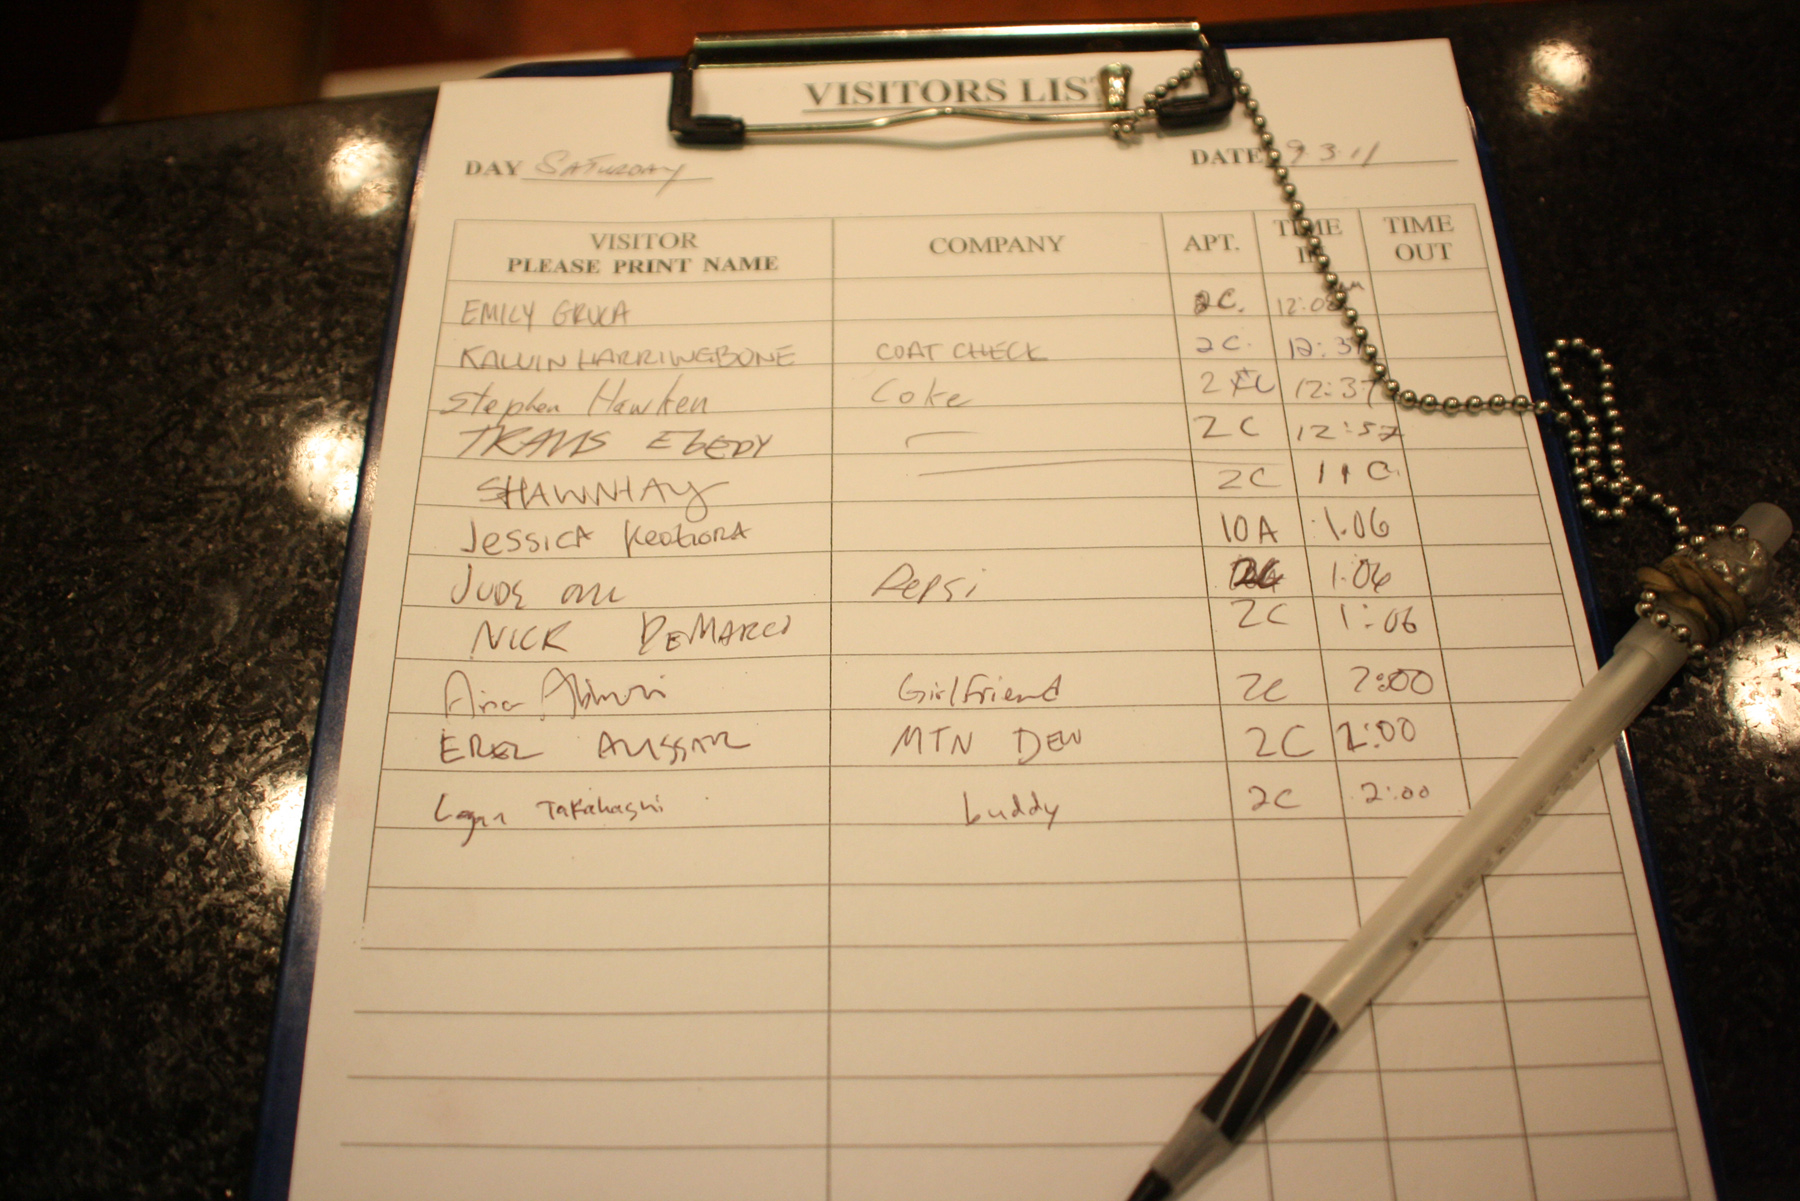 VISITORS LIST
DAY SATURDAY DATE 9.3.11
VISITOR PLEASE PRINT NAME COMPANY APT. TIME IN TIME OUT
EMILY GRUCA 2C. 12:08 AM
KALVIN HARRINGBONE COAT CHECK 2C. 12:37
Stephen Hawken Coke 2 C 12:37
TRAVIS EBEDY 2C 12:57
SHAWN HAY 2C
JESSICA 10A 1:06
JUDE Pepsi 1:06
NICK DEMARCO 2C 1:06
Girlfriend 2C 2:00
EREZ MTN DEW 2C 2:00
Logan Takahashi buddy 2C 2:00